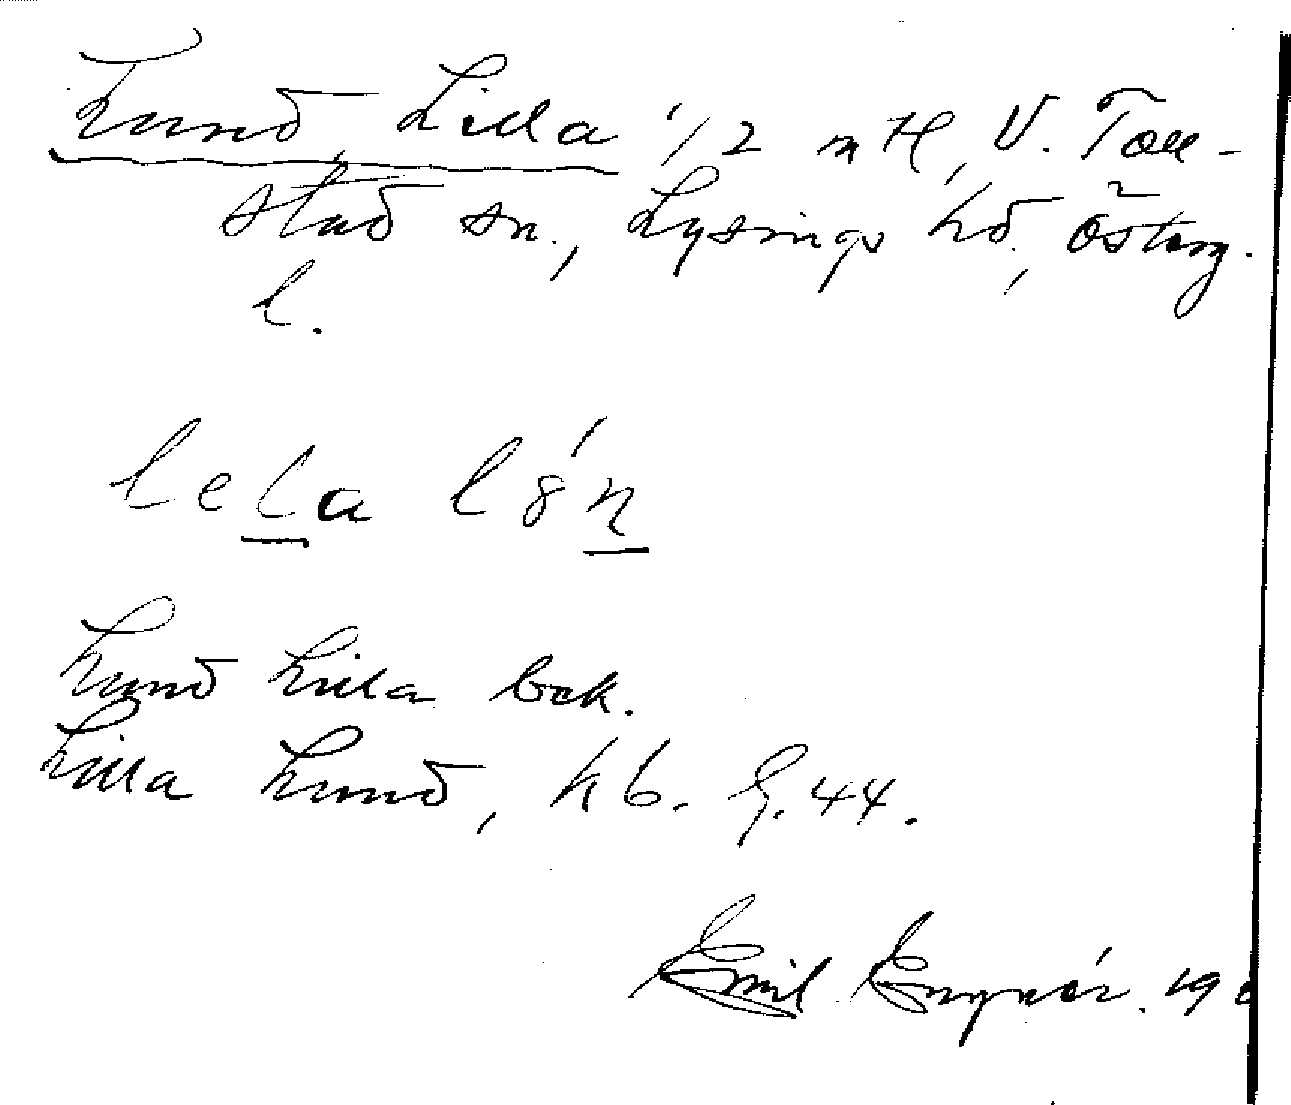 Lund, Lilla 1/2 mtl, V. Toll-
stad sn., Lysings hd., Österg.
l.
lela l8́n
Lund Lilla bok.
Lilla Lund, kb. G. 44.
Emil Engqvár. 190